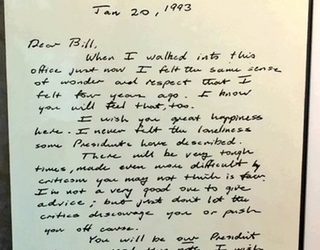 Jan 20, 1993
Dear Bill,
When I walked into this
office just now I felt the same sense
of wonder and respect that I
felt four years ago. I know
you will feel that, too.
I wish you great happiness
here. I never felt the loneliness
some Presidents have described.
There will be very tough
times, made even more difficult by
criticism you may not think is fair.
I'm not a very good one to give
advice; but just don't let the
critics discourage you or push
you off course.
You will be our President
I wish